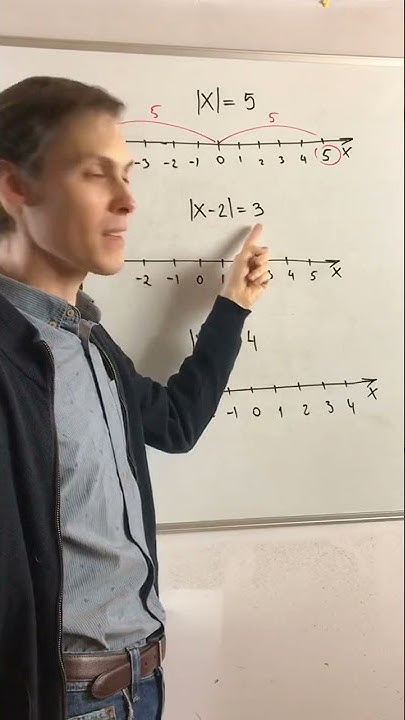 |X| = 5
5 5
-3 -2 -1 0 1 2 3 4 5 X
|X-2| = 3
-2 -1 0 1 3 4 5 X
| 4
-1 0 1 2 3 4 X